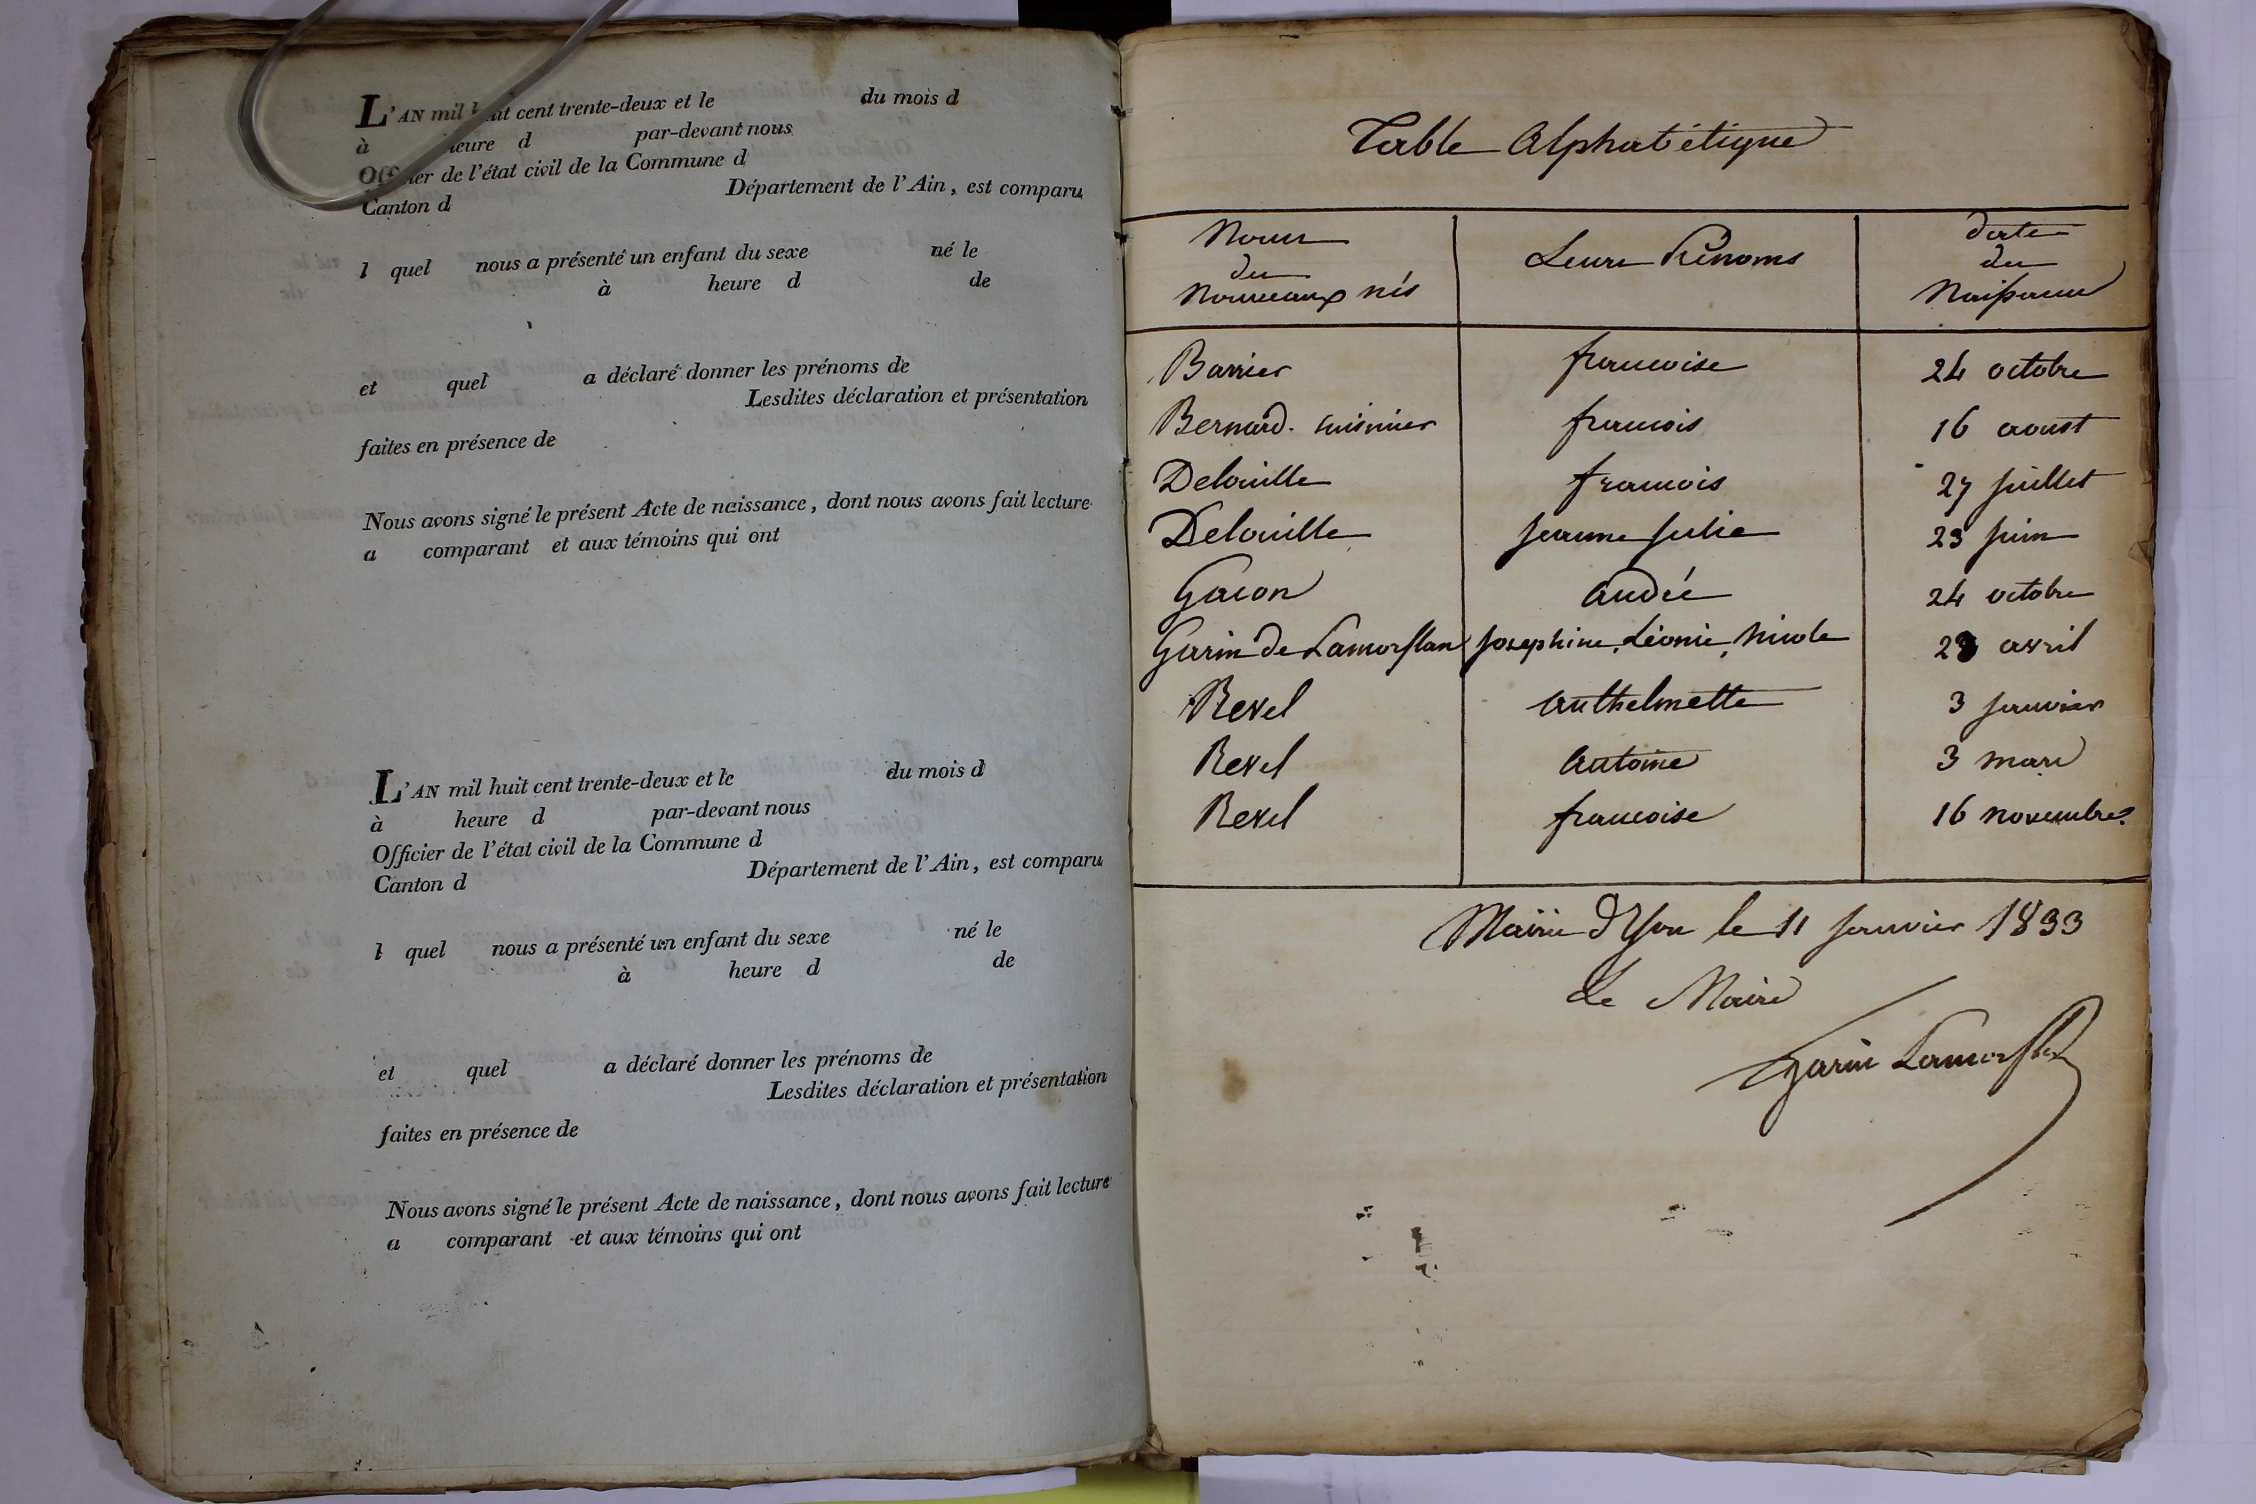 L'AN mil huit cent trente-deux et le du mois d
à heure d par-devant nous
Officier de l'état civil de la Commune d
Canton d Département de l'Ain, est comparu
l quel nous a présenté un enfant du sexe né le
à heure d de
et quel a déclaré donner les prénoms de
Lesdites déclaration et présentation
faites en présence de
Nous avons signé le présent Acte de naissance, dont nous avons fait lecture
a comparant et aux témoins qui ont
L'AN mil huit cent trente-deux et le du mois d
à heure d par-devant nous
Officier de l'état civil de la Commune d
Canton d Département de l'Ain, est comparu
l quel nous a présenté un enfant du sexe né le
à heure d de
et quel a déclaré donner les prénoms de
Lesdites déclaration et présentation
faites en présence de
Nous avons signé le présent Acte de naissance, dont nous avons fait lecture
a comparant et aux témoins qui ont
Table Alphabétique
Noms
des
Nouveaux nés
Leurs Prénoms
date
des
Naissances
Barrier francoise 24 octobre
Bernard. cuisinier francois 16 aoust
Delouille francois 27 juillet
Delouille jeanne julie 23 juin
Gacon andré 24 octobre
Garin de Lamorflan josephine, Léonie, Nicole avril
Revel anthelmette 3 janvier
Revel antoine 3 mars
Revel francoise 16 novembre.
Mairie d'Yon le 11 janvier 1833
Le Maire
Garin Lamorflan